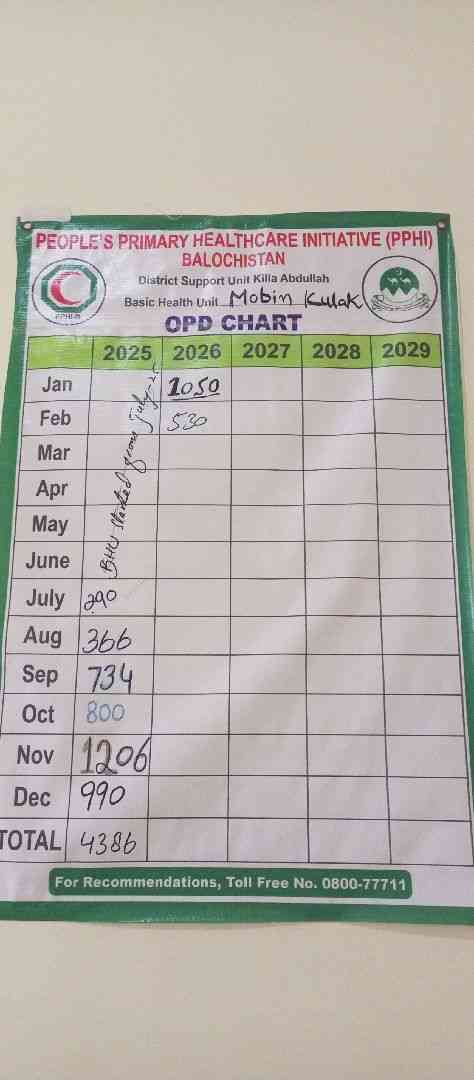 PEOPLE'S PRIMARY HEALTHCARE INITIATIVE (PPHI)
BALOCHISTAN
District Support Unit Killa Abdullah
Basic Health Unit Mobin Kulak
PPHI-B
OPD CHART
2025 2026 2027 2028 2029
Jan 1050
Feb 530
Mar
Apr
May
June
BHU started from July-25
July 290
Aug 366
Sep 734
Oct 800
Nov 1206
Dec 990
TOTAL 4386
For Recommendations, Toll Free No. 0800-77711